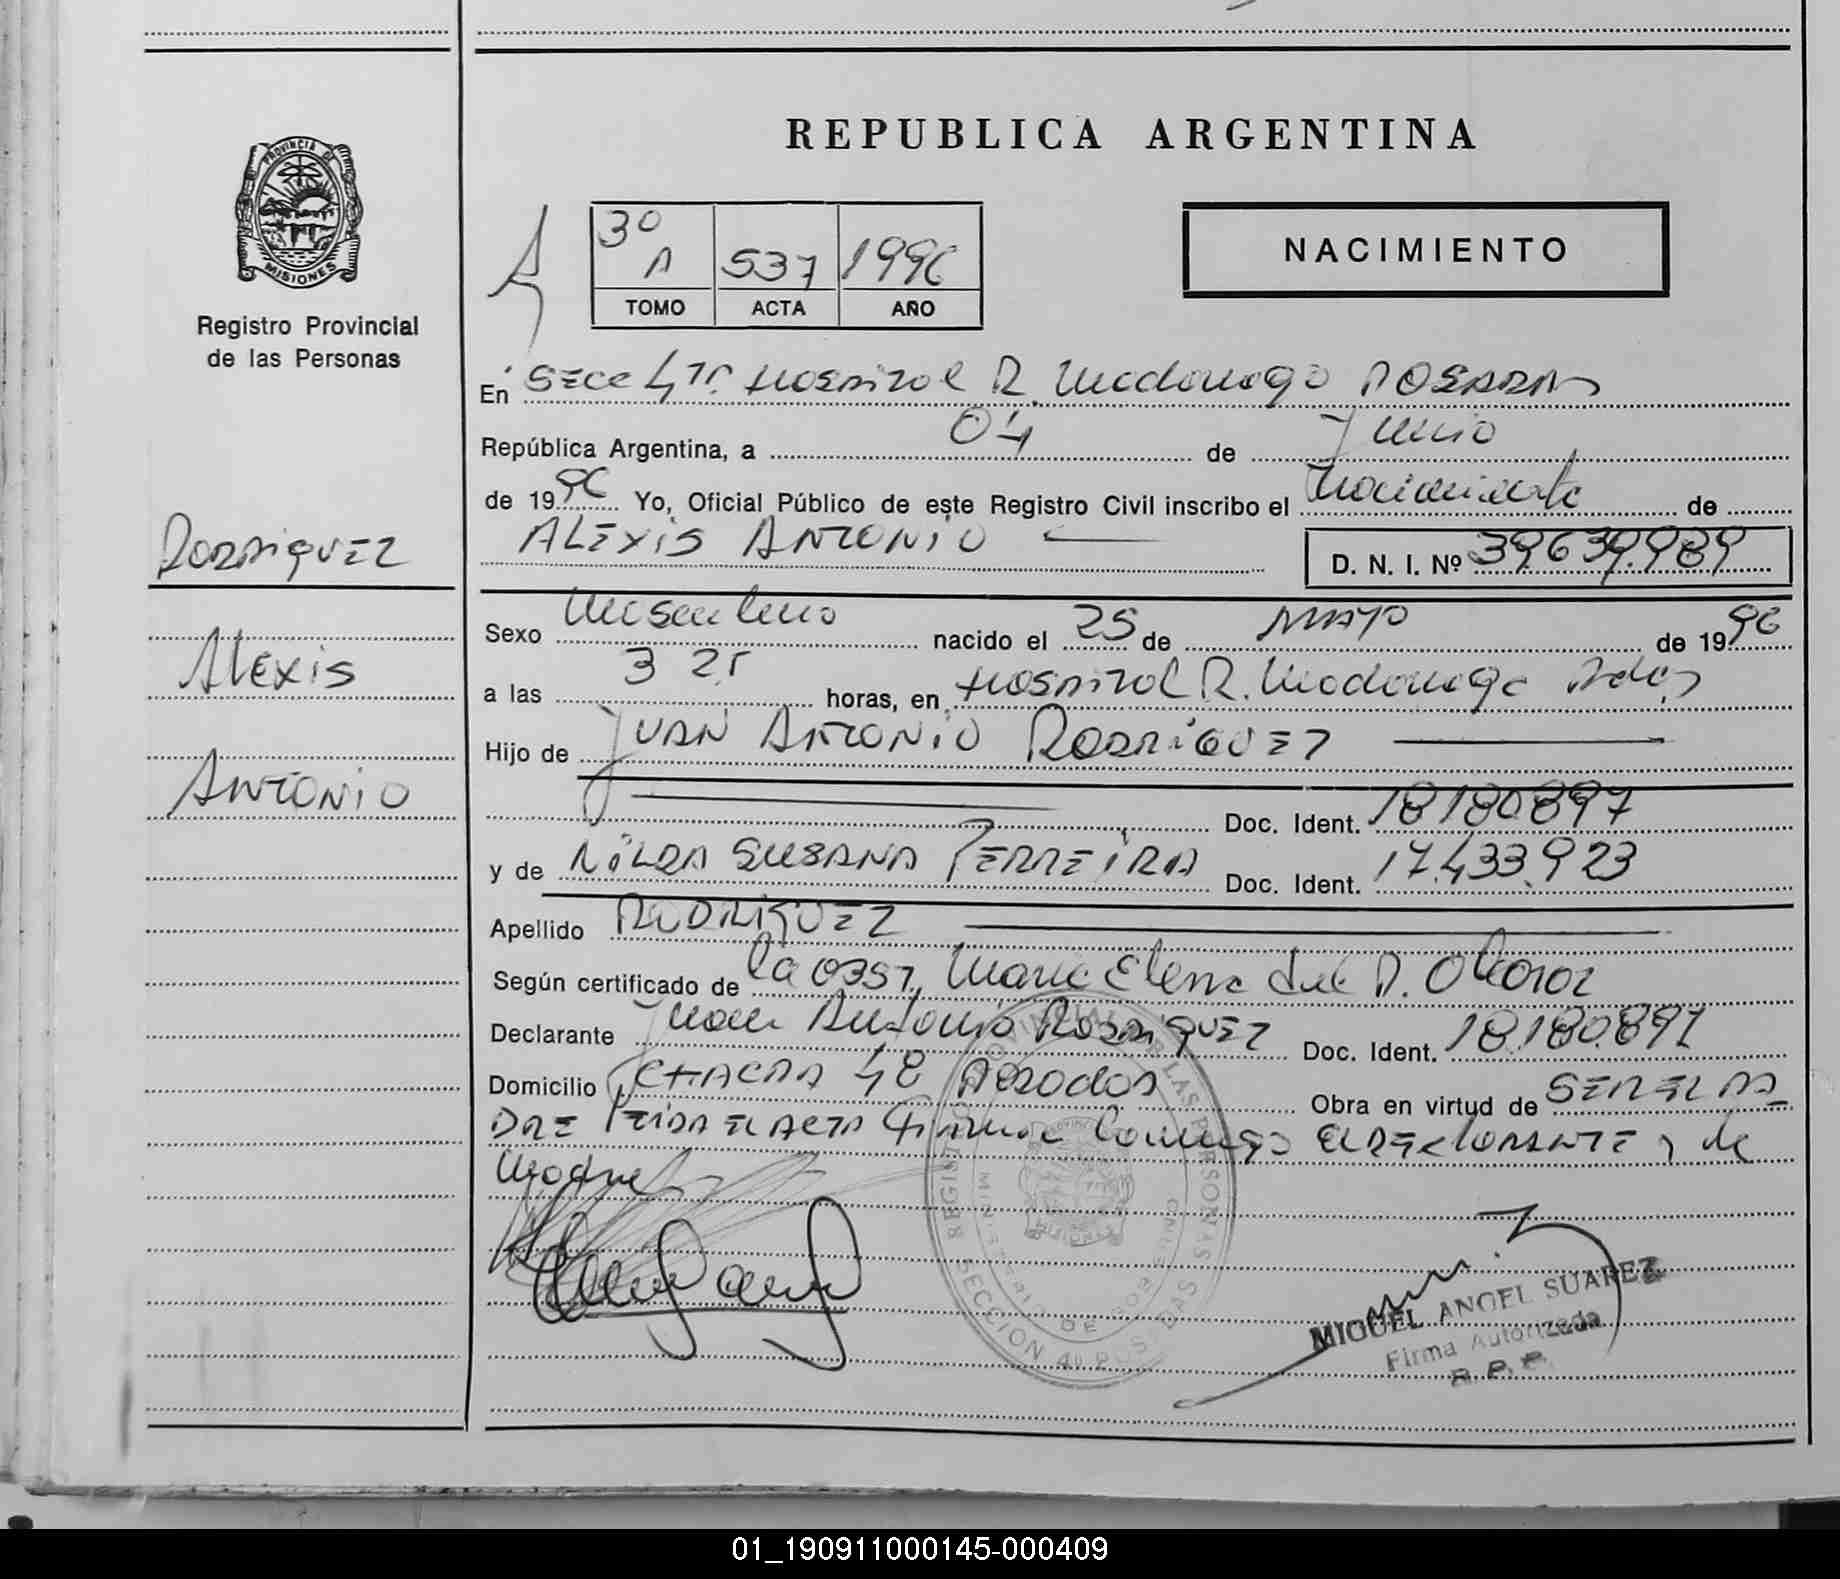 REPUBLICA ARGENTINA
PROVINCIA DE
MISIONES
Registro Provincial
de las Personas
3º
A 537 1996
TOMO ACTA AÑO
NACIMIENTO
En Secc 4ta. Hospital R. Madariaga POSADAS
República Argentina, a 04 de Junio
de 1996 Yo, Oficial Público de este Registro Civil inscribo el Nacimiento de
ALEXIS ANTONIO
D. N. I. Nº 39.639.989
Rodriguez
Alexis
Antonio
Sexo Masculino nacido el 25 de MAYO de 1996
a las 3 25 horas, en Hospital R. Madariaga Pdas
Hijo de JUAN ANTONIO RODRIGUEZ
Doc. Ident. 18180897
y de NILDA SUSANA FERREIRA Doc. Ident. 17.433.923
Apellido RODRIGUEZ
Según certificado de la obst, Maria Elena del P.
Declarante Juan Antonio RODRIGUEZ Doc. Ident. 18.180.897
Domicilio CHACRA 48 Posadas Obra en virtud de SER EL PA_
DRE LEIDA EL ACTA Firma Conmigo EL DECLARANTE y la
Madre
REGISTRO PROVINCIAL DE LAS PERSONAS
SECCION 4ª POSADAS
MISIONES
MIGUEL ANGEL SUAREZ
Firma Autorizada
R. P. P.
01_190911000145-000409